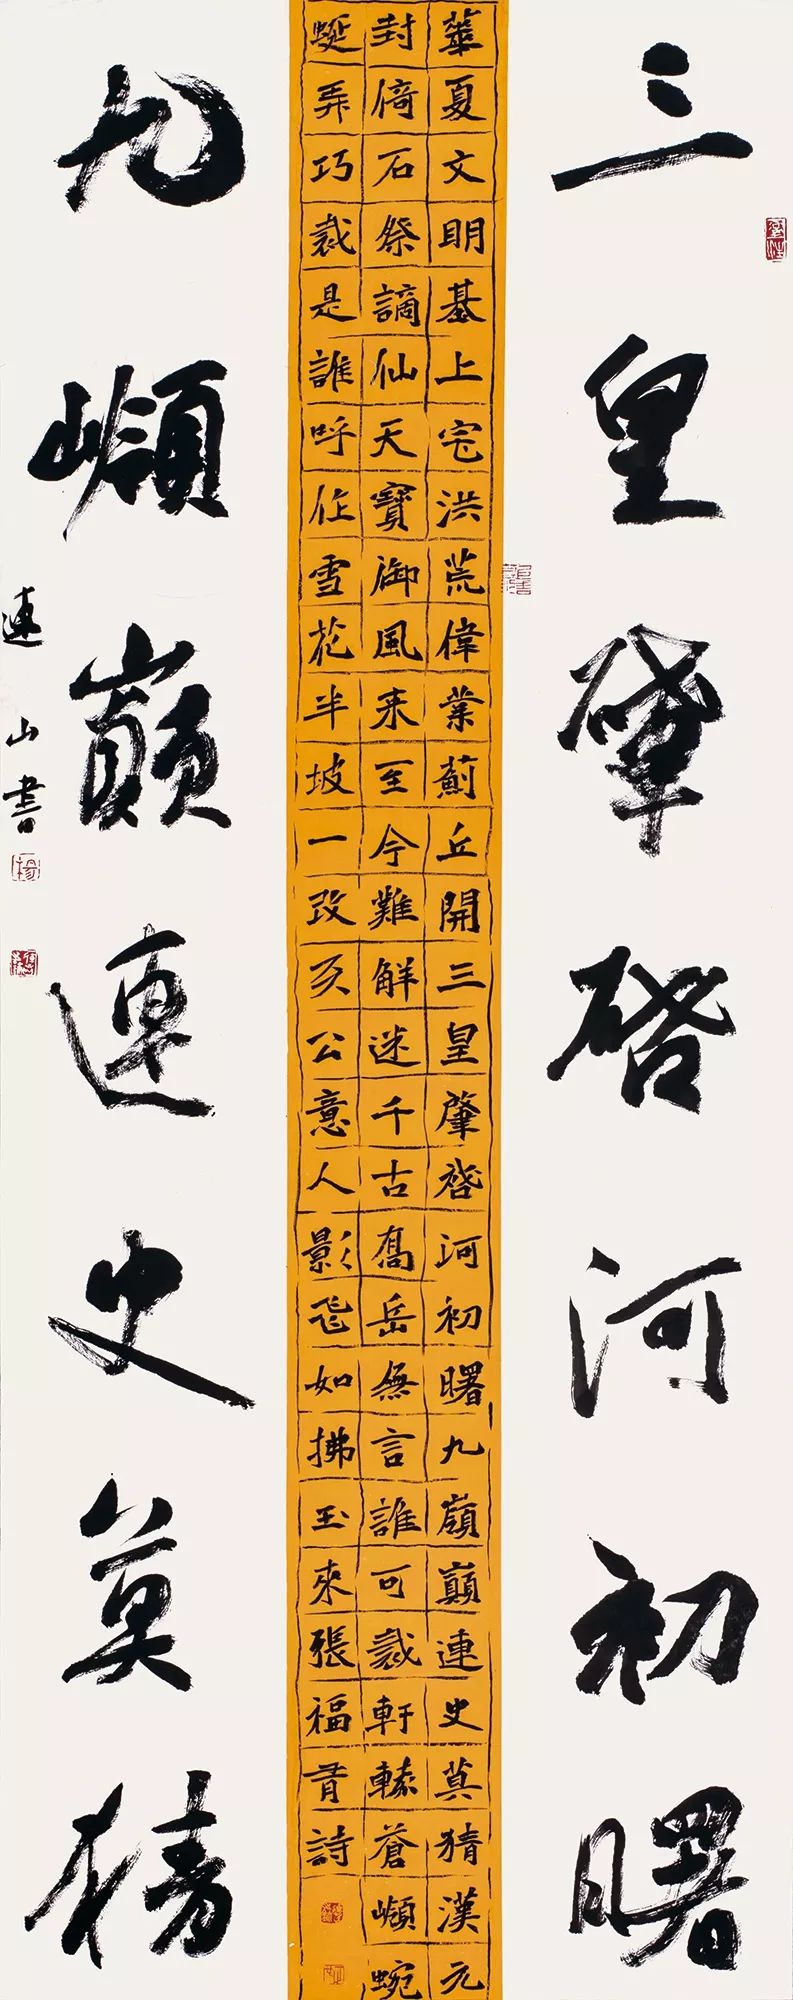 三皇肇啓河初曙
華夏文明基上宅洪荒偉業薊丘開三皇肇啓河初曙九嶺巔連史莫猜漢元
封倚石祭謫仙天寶御風来至今難解迷千古高岳無言誰可裁軒轅蒼嶺蜿
蜒弄巧裁是誰呼作雪花半坡一改天公意人影飛如拂玉來張福青詩
九嶺巔連史莫猜
連山書